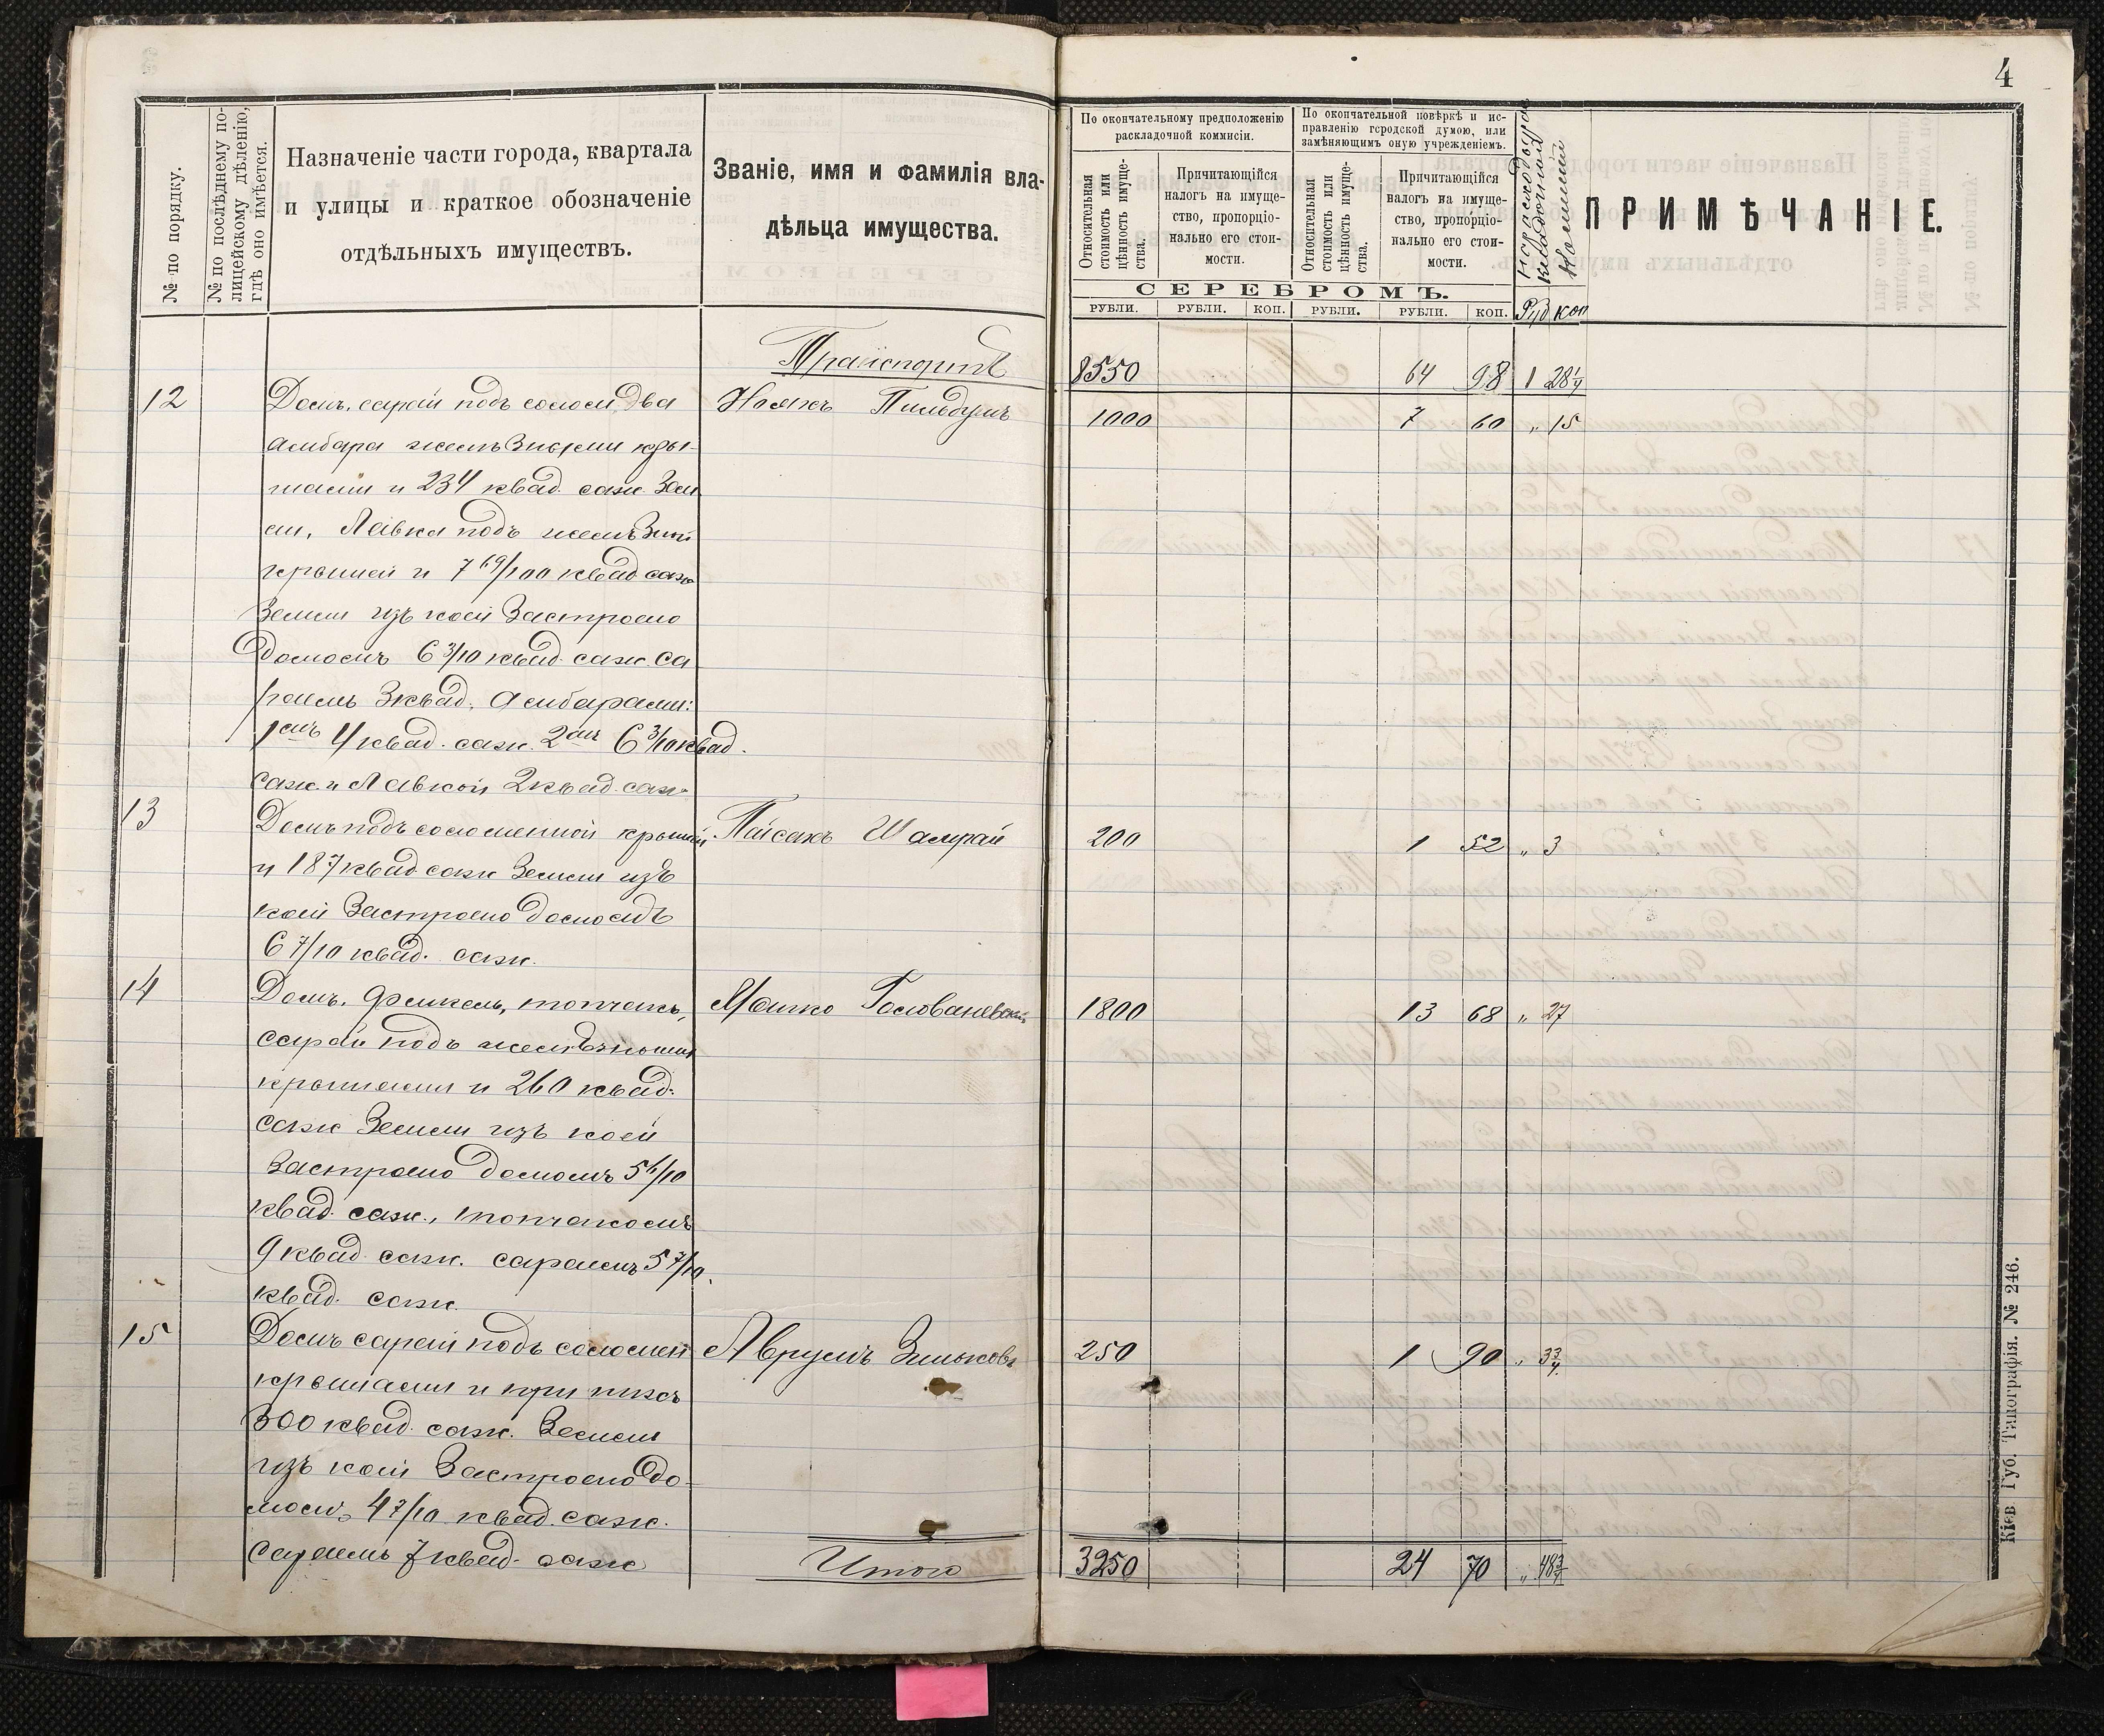 4
№ по порядку.
№ по послѣднему по-
лицейскому дѣленію,
гдѣ оно имѣется.
Назначеніе части города, квартала
и улицы и краткое обозначеніе
отдѣльныхъ имуществъ.
Званіе, имя и фамилія вла-
дѣльца имущества.
По окончательному предположенію
раскладочной коммисіи.
По окончательной повѣркѣ и ис-
правленію городской думою, или
замѣняющимъ оную учрежденіемъ.
Относительная
стоимость или
цѣнность имуще-
ства.
Причитающійся
налогъ на имуще-
ство, пропорціо-
нально его стои-
мости.
Относительная
стоимость или
цѣнность имуще-
ства.
Причитающійся
налогъ на имуще-
ство, пропорціо-
нально его стои-
мости.
На расходы
Коммисіи
ПРИМѢЧАНІЕ.
СЕРЕБРОМЪ.
РУБЛИ. РУБЛИ. КОП. РУБЛИ. РУБЛИ. КОП. Руб коп
Транспортъ 8550 64 98 1 28¼
12 Домъ, сарай подъ солом. два Ноякъ 1000 7 60 „ 15
амбара желѣзными кры-
шами и 234 квад. саж. Зем
ли, Лавка подъ желѣзн.
крышей и 7 69/100 квад саж
Земли изъ коей Застроено
домомъ 6 3/10 квад. саж. са
раемъ 3 квад. Амбарами:
1мъ 4 квад. саж. 2мъ 6 3/10 квад.
саж. и Лавкой 2 квад. саж.
13 Домъ подъ соломенной крышей Пейсахъ Шамрай 200 1 52 „ 3
и 187 квад саж Земли изъ
коей Застроено домомъ
6 7/10 квад. саж.
14 Домъ, флигель, топчакъ, Мошко Голованевскій 1800 13 68 „ 27
сарай подъ желѣзными
крышами и 260 квад.
саж Земли изъ коей
Застроено домомъ
квад. саж., топчакомъ
9 квад саж. сараемъ 5 7/10
квад. саж.
15 Домъ сарай подъ соломен Аврумъ Зиньковъ 250 1 90 „ 3¾
крышами и при нихъ
300 квад. саж. Земли
изъ коей Застроено до-
момъ 4 7/10 квад. саж.
Сараемъ 7 квад. саж
Итого 3250 24 70 „ 48¾
Кіев Губ. Типографія. № 246.